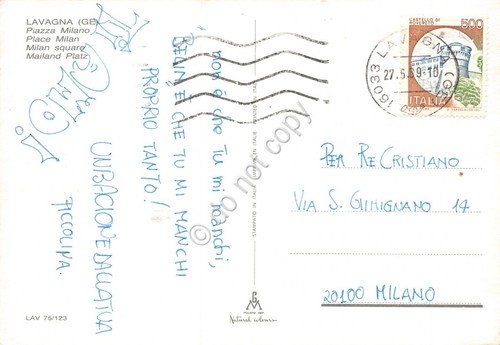 LAVAGNA (GE)
Piazza Milano
Place Milan
Milan square
Mailand Platz
non è che tu mi manchi,
È CHE TU MI MANCHI
PROPRIO TANTO!
UN BACIONE DALLA TUA
PICCOLINA.
LAV 75/123
STAMPATO IN ITALIA
MILANO
Natural colour
do not copy
500
ITALIA
16033 LAVAGNA (GE)
27.5.89-10
PER RE CRISTIANO
VIA S. GIMIGNANO 14
20100 MILANO